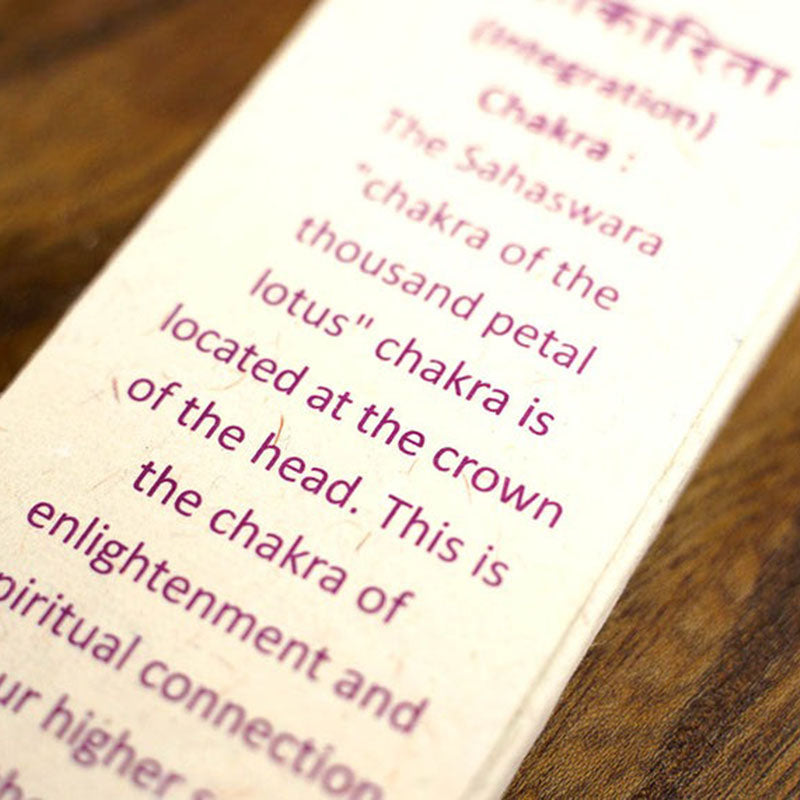 (Integration)
Chakra :
The Sahaswara
"chakra of the
thousand petal
lotus" chakra is
located at the crown
of the head. This is
the chakra of
enlightenment and
connection
higher